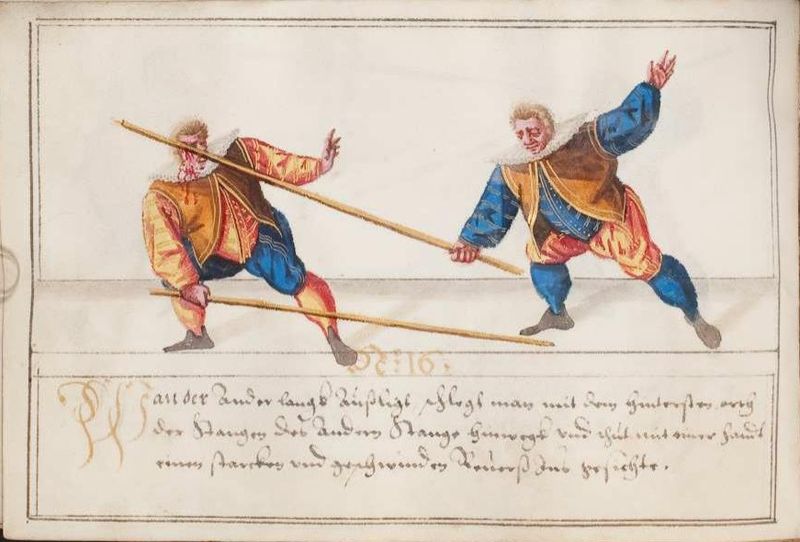 No: 16.
Wan der Ander langs Außligt, schlegt man mit dem hintersten orth
der Stangen des Andern Stange hinwegk vnd thut mit einer handt
einen starcken vnd geschwinden Reuerß Ins gesichte.